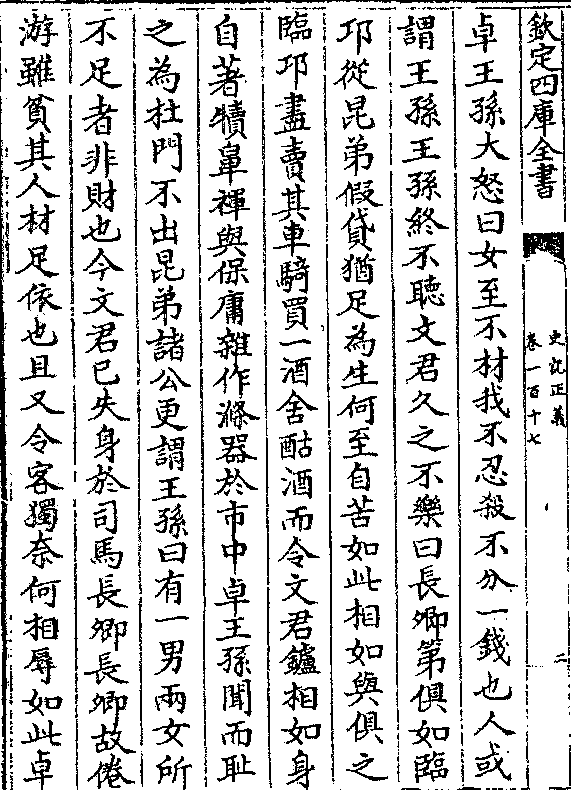 欽定四庫全書
史記正義
卷一百十七
二
卓王孫大怒曰女至不材我不忍殺不分一錢也人或
謂王孫王孫終不聽文君久之不樂曰長卿第俱如臨
邛從昆弟假貸猶足為生何至自苦如此相如與俱之
臨邛盡賣其車騎買一酒舍酤酒而令文君鑪相如身
自著犢鼻褌與保庸雜作滌器於市中卓王孫聞而耻
之為杜門不出昆弟諸公更謂王孫曰有一男兩女所
不足者非財也今文君已失身於司馬長卿長卿故倦
游雖貧其人材足依也且又令客獨奈何相辱如此卓